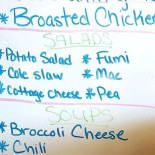 *Broasted Chicken
SALADS
*Potato Salad *Fumi
*Cole slaw *Mac
*Cottage cheese *Pea
SOUPS
*Broccoli Cheese
*Chili